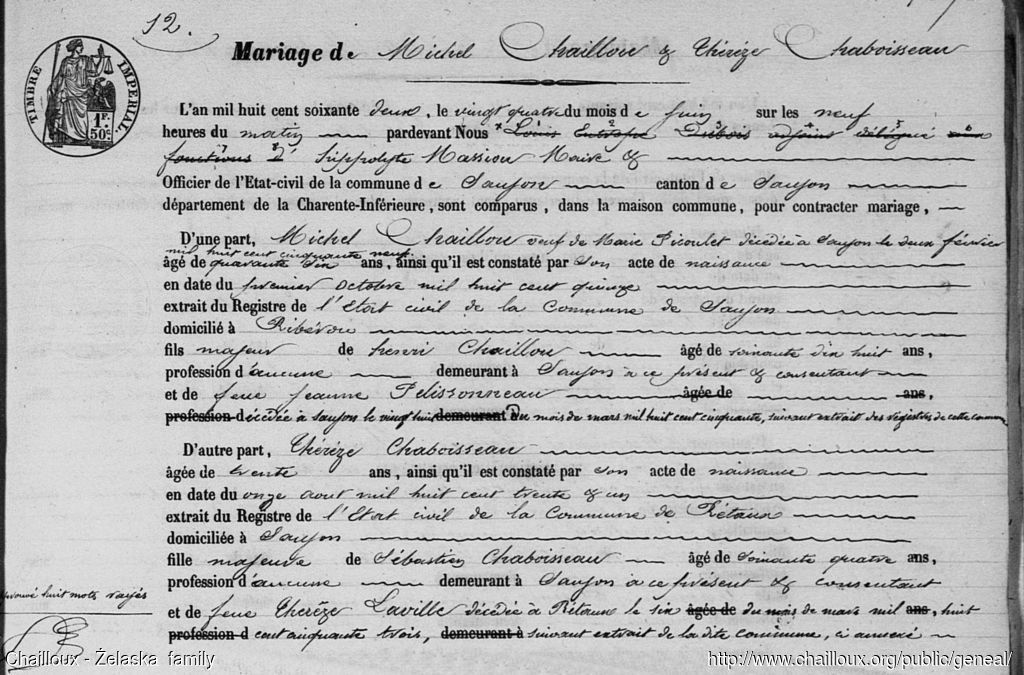 12.
Mariage de Michel Chaillou & Thérèze Chaboisseau
TIMBRE IMPERIAL
1F. 50c.
L'an mil huit cent soixante deux, le vingt quatre du mois de juin sur les neuf
heures du matin pardevant Nous Louis Dubois adjoint délégué
fonctions Hippolyte Massiou Maire &
Officier de l'Etat-civil de la commune de Saujon canton de Saujon
département de la Charente-Inférieure, sont comparus, dans la maison commune, pour contracter mariage,
D'une part, Michel Chaillou veuf de Marie Picoulet décédée à Saujon le deux février
mil huit cent cinquante neuf
âgé de quarante six ans, ainsi qu'il est constaté par son acte de naissance
en date du premier octobre mil huit cent quinze
extrait du Registre de l'Etat civil de la Commune de Saujon
domicilié à Ribérou
fils majeur de henri Chaillou âgé de soixante dix huit ans,
profession d'aucune demeurant à Saujon à ce présent & consentant
et de feue jeanne Pelissonneau âgée de ans,
profession décédée à Saujon le vingt huit demeurant du mois de mars mil huit cent cinquante, suivant extrait des registres de cette commune
D'autre part, Thérèze Chaboisseau
âgée de trente ans, ainsi qu'il est constaté par son acte de naissance
en date du onze aout mil huit cent trente & un
extrait du Registre de l'Etat civil de la Commune de Rétaux
domiciliée à Saujon
fille majeure de Sébastien Chaboisseau âgé de soixante quatre ans,
profession d'aucune demeurant à Saujon à ce présent & consentant
et de feue Thérèze Laville décédée à Rétaux le six âgée de du mois de mars mil ans, huit
profession d cent cinquante trois, demeurant à suivant extrait de la dite commune, ci annexé
approuvé huit mots rayés
Chailloux - Żelaska family
http://www.chailloux.org/public/geneal/